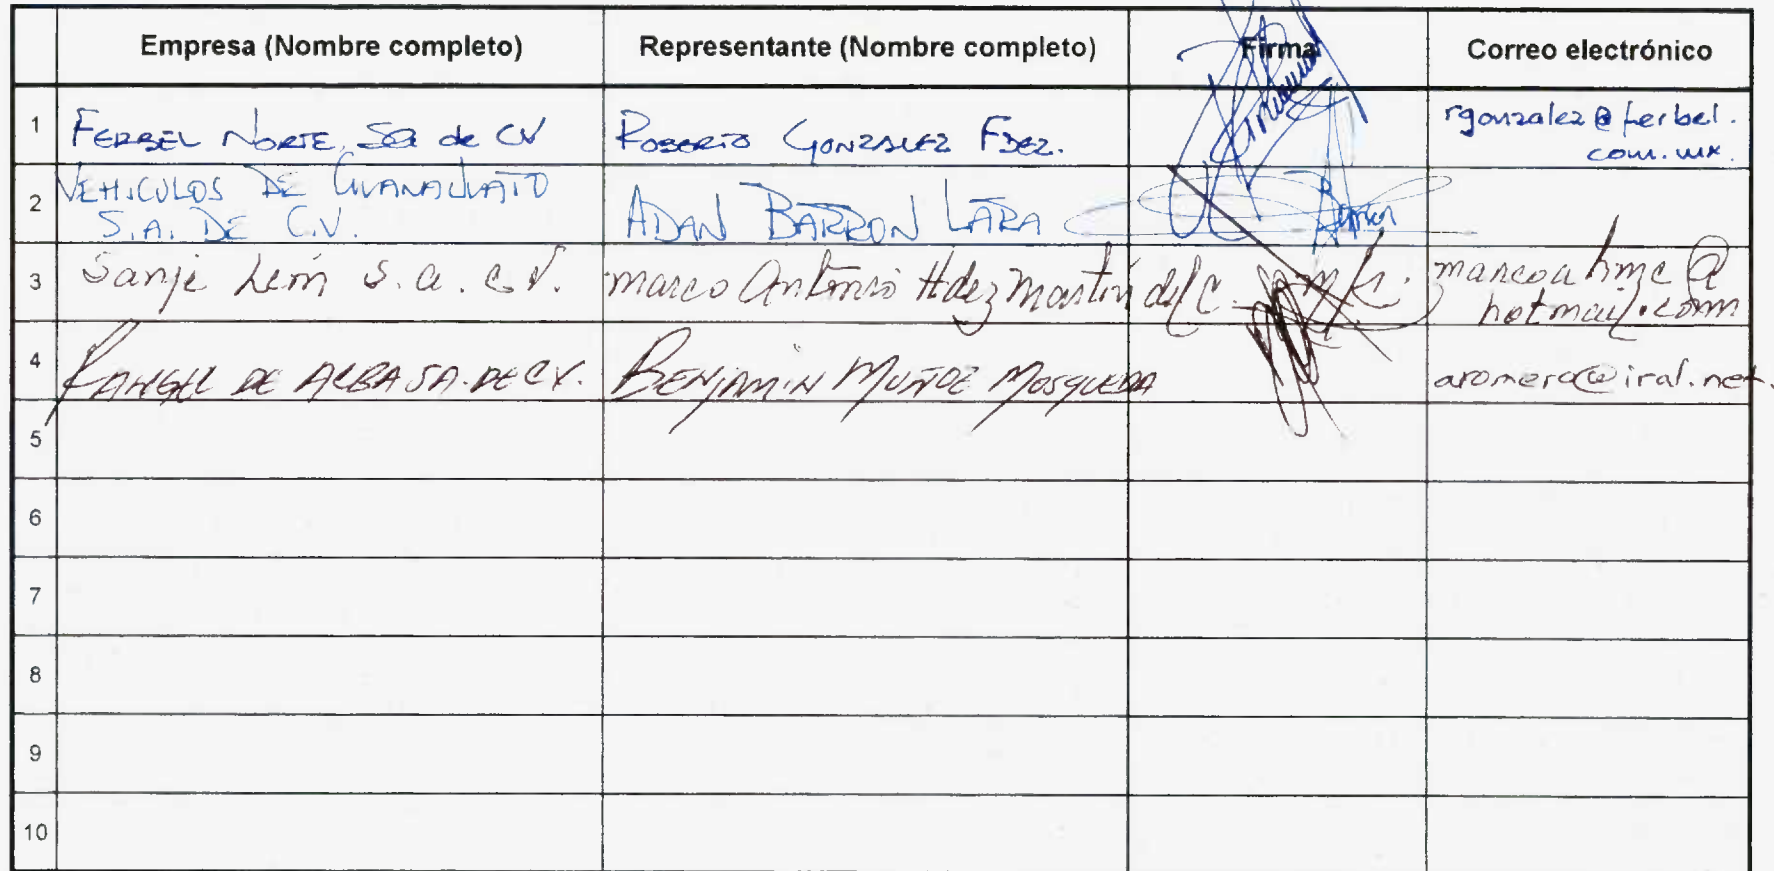 Empresa (Nombre completo) Representante (Nombre completo) Firma Correo electrónico
1 FERBEL NORTE, SA de CV ROBERTO GONZALEZ FDEZ. rgonzalez@ferbel.
com.mx.
2 VEHICULOS DE GUANAJUATO
S.A. DE C.V. ADAN BARRON LARA
3 Sanje León S.a. c.V. marco Antonio Hdez Martín del C. marcoahmc@
hotmail.com
4 RANGEL DE ALBA SA. DE CV. BENJAMIN MUÑOZ MOSQUEDA aromero@iral.net.
5
6
7
8
9
10